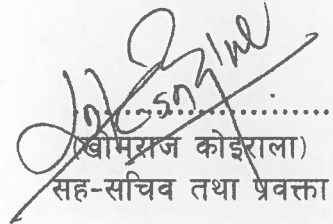 ....................
(खोमराज कोइराला)
सह-सचिव तथा प्रवक्ता